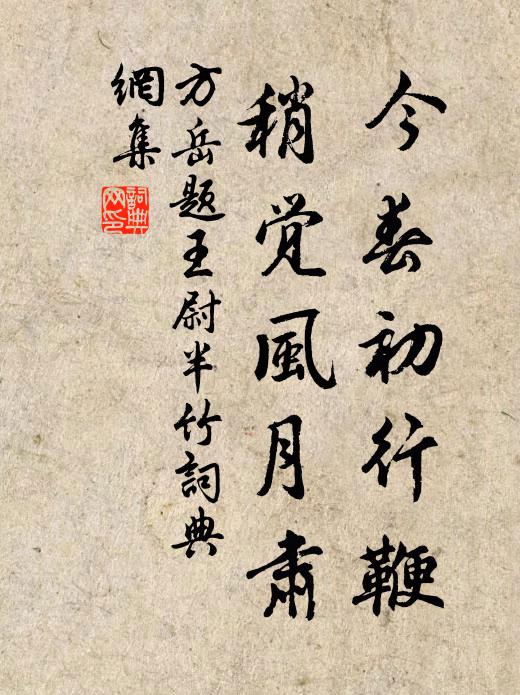 今春初行鞭
稍觉風月肅
方岳題王尉半竹詞典
網集
詞典网印